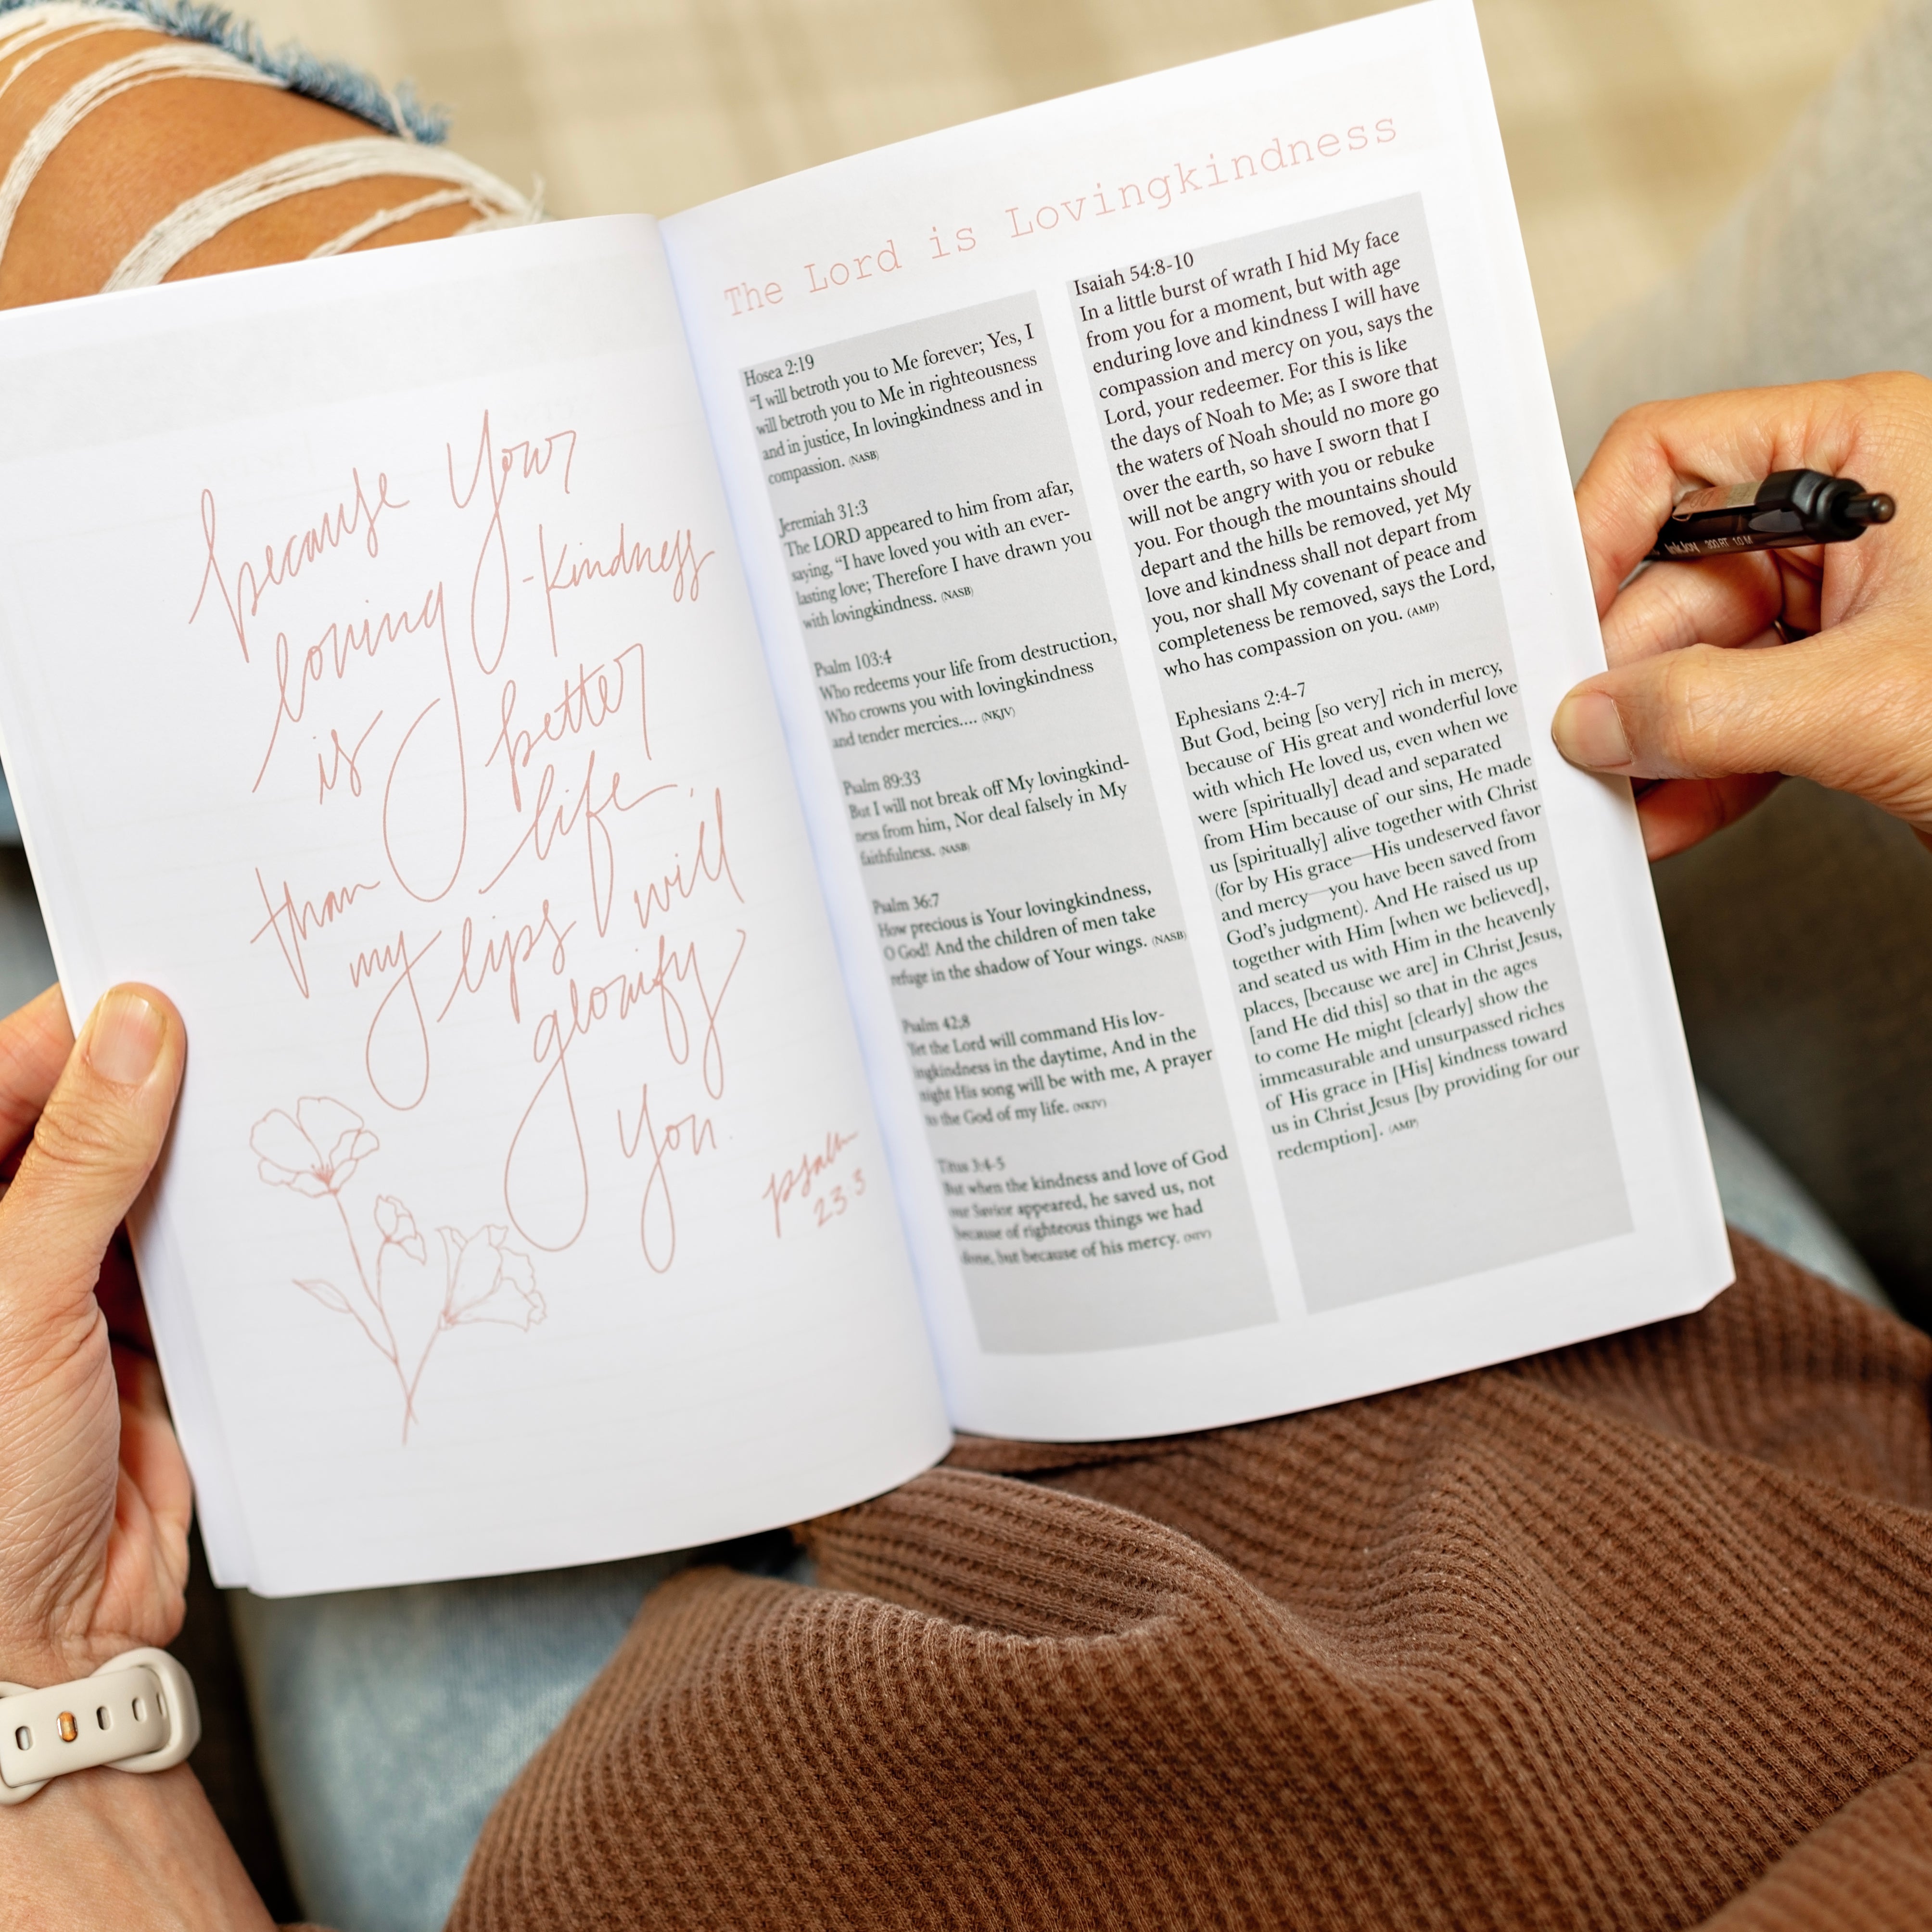 because Your
loving-kindness
is better
than life,
my lips will
glorify
You.
psalm
23:3
The Lord is Lovingkindness
Hosea 2:19
“I will betroth you to Me forever; Yes, I
will betroth you to Me in righteousness
and in justice, In lovingkindness and in
compassion. (NASB)
Jeremiah 31:3
The LORD appeared to him from afar,
saying, “I have loved you with an ever-
lasting love; Therefore I have drawn you
with lovingkindness. (NASB)
Psalm 103:4
Who redeems your life from destruction,
Who crowns you with lovingkindness
and tender mercies.... (NKJV)
Psalm 89:33
But I will not break off My lovingkind-
ness from him, Nor deal falsely in My
faithfulness. (NASB)
Psalm 36:7
How precious is Your lovingkindness,
O God! And the children of men take
refuge in the shadow of Your wings. (NASB)
Psalm 42:8
Yet the Lord will command His lov-
ingkindness in the daytime, And in the
night His song will be with me, A prayer
to the God of my life. (NKJV)
Titus 3:4-5
But when the kindness and love of God
our Savior appeared, he saved us, not
because of righteous things we had
done, but because of his mercy. (NIV)
Isaiah 54:8-10
In a little burst of wrath I hid My face
from you for a moment, but with age
enduring love and kindness I will have
compassion and mercy on you, says the
Lord, your redeemer. For this is like
the days of Noah to Me; as I swore that
the waters of Noah should no more go
over the earth, so have I sworn that I
will not be angry with you or rebuke
you. For though the mountains should
depart and the hills be removed, yet My
love and kindness shall not depart from
you, nor shall My covenant of peace and
completeness be removed, says the Lord,
who has compassion on you. (AMP)
Ephesians 2:4-7
But God, being [so very] rich in mercy,
because of His great and wonderful love
with which He loved us, even when we
were [spiritually] dead and separated
from Him because of our sins, He made
us [spiritually] alive together with Christ
(for by His grace—His undeserved favor
and mercy—you have been saved from
God’s judgment). And He raised us up
together with Him [when we believed],
and seated us with Him in the heavenly
places, [because we are] in Christ Jesus,
[and He did this] so that in the ages
to come He might [clearly] show the
immeasurable and unsurpassed riches
of His grace in [His] kindness toward
us in Christ Jesus [by providing for our
redemption]. (AMP)
InkJoy 300 RT 1.0 M